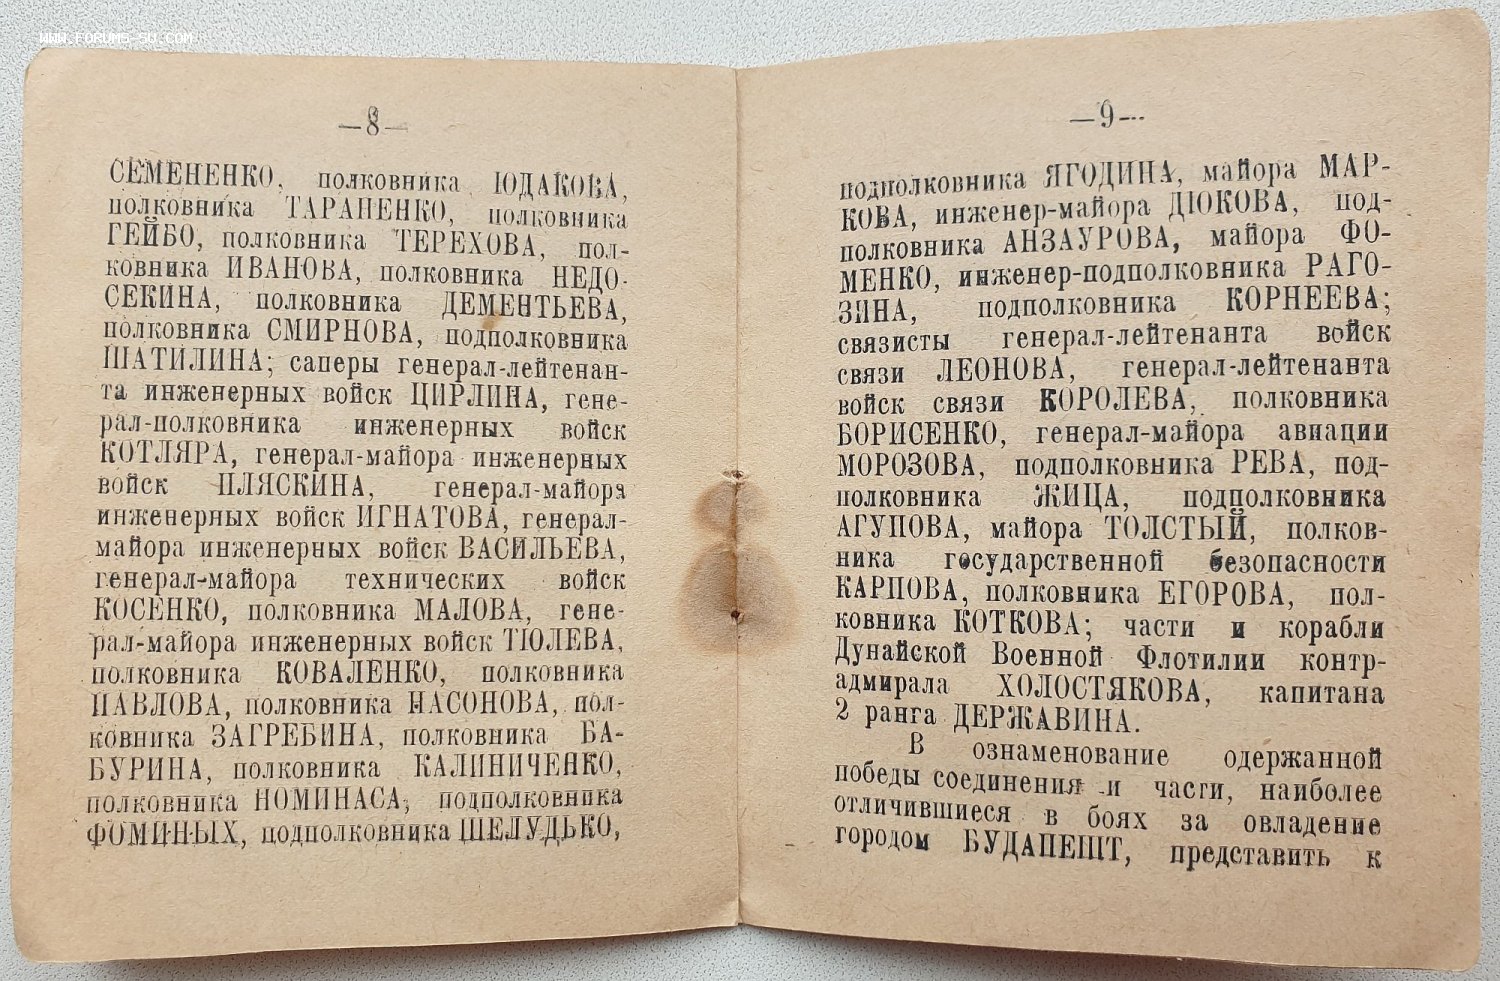 WWW.FORUMS-SU.COM
—8—
СЕМЕНЕНКО, полковника ЮДАКОВА,
полковника ТАРАПЕНКО, полковника
ГЕЙБО, полковника ТЕРЕХОВА, пол-
ковника ИВАНОВА, полковника НЕДО-
СЕКИНА, полковника ДЕМЕНТЬЕВА,
полковника СМИРНОВА, подполковника
ШАТИЛИНА; саперы генерал-лейтенан-
та инженерных войск ЦИРЛИНА, гене-
рал-полковника инженерных войск
КОТЛЯРА, генерал-майора инженерных
войск ПЛЯСКИНА, генерал-майора
инженерных войск ИГНАТОВА, генерал-
майора инженерных войск ВАСИЛЬЕВА,
генерал-майора технических войск
КОСЕНКО, полковника МАЛОВА, гене-
рал-майора инженерных войск ТЮЛЕВА,
полковника КОВАЛЕНКО, полковника
ПАВЛОВА, полковника НАСОНОВА, пол-
ковника ЗАГРЕБИНА, полковника БА-
БУРИНА, полковника КАЛИНИЧЕНКО,
полковника НОМИНАСА, подполковника
ФОМИНЫХ, подполковника ШЕЛУДЬКО,
—9—
подполковника ЯГОДИНА, майора МАР-
КОВА, инженер-майора ДЮКОВА, под-
полковника АНЗАУРОВА, майора ФО-
МЕНКО, инженер-подполковника РАГО-
ЗИНА, подполковника КОРНЕЕВА;
связисты генерал-лейтенанта войск
связи ЛЕОНОВА, генерал-лейтенанта
войск связи КОРОЛЕВА, полковника
БОРИСЕНКО, генерал-майора авиации
МОРОЗОВА, подполковника РЕВА, под-
полковника ЖИЦА, подполковника
АГУПОВА, майора ТОЛСТЫЙ, полков-
ника государственной безопасности
КАРПОВА, полковника ЕГОРОВА, пол-
ковника КОТКОВА; части и корабли
Дунайской Военной Флотилии контр-
адмирала ХОЛОСТЯКОВА, капитана
2 ранга ДЕРЖАВИНА.
В ознаменование одержанной
победы соединения и части, наиболее
отличившиеся в боях за овладение
городом БУДАПЕШТ, представить к